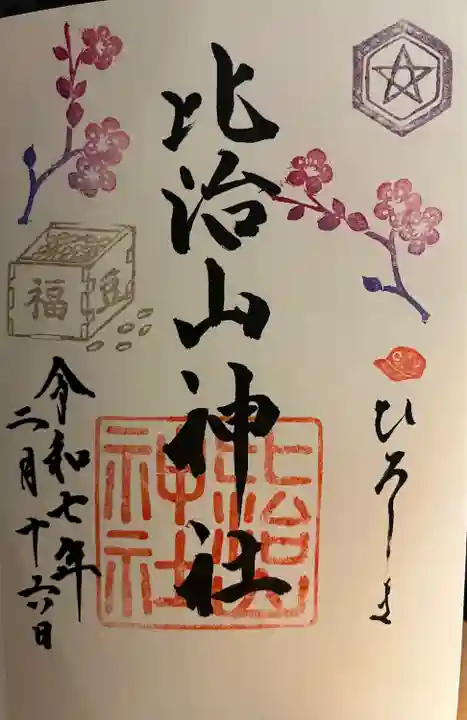 ひろしま
比治山神社
比治山
神社
福
豆
令和七年
二月十六日